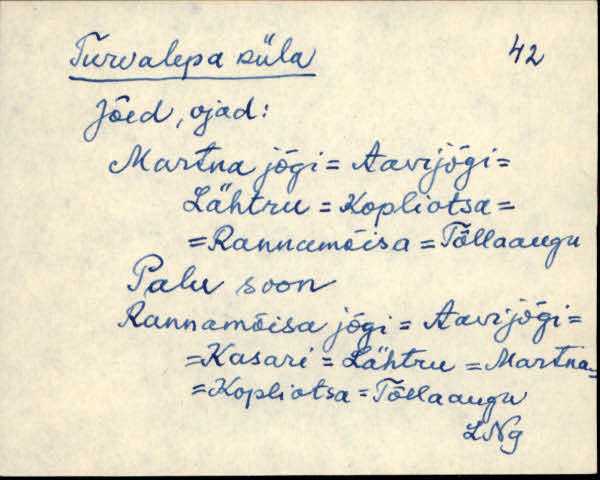 Turvalepa küla 42
Jõed, ojad:
Martna jõgi = Aavijõgi =
Lähtru = Kopliotsa =
= Rannamõisa = Tõllaaugu
Palu soon
Rannamõisa jõgi = Aavijõgi =
= Kasari = Lähtru = Martna =
= Kopliotsa = Tõllaaugu
LNg